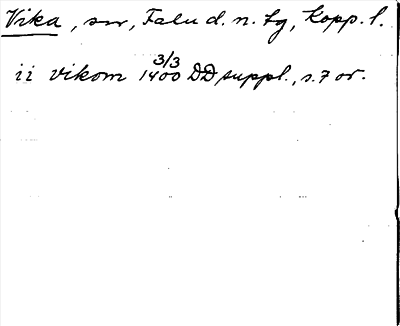 Vika, sn, Falu d. n. tg, Kopp. l.
ii vikom 1400 3/3 DD suppl., s. 7 or.